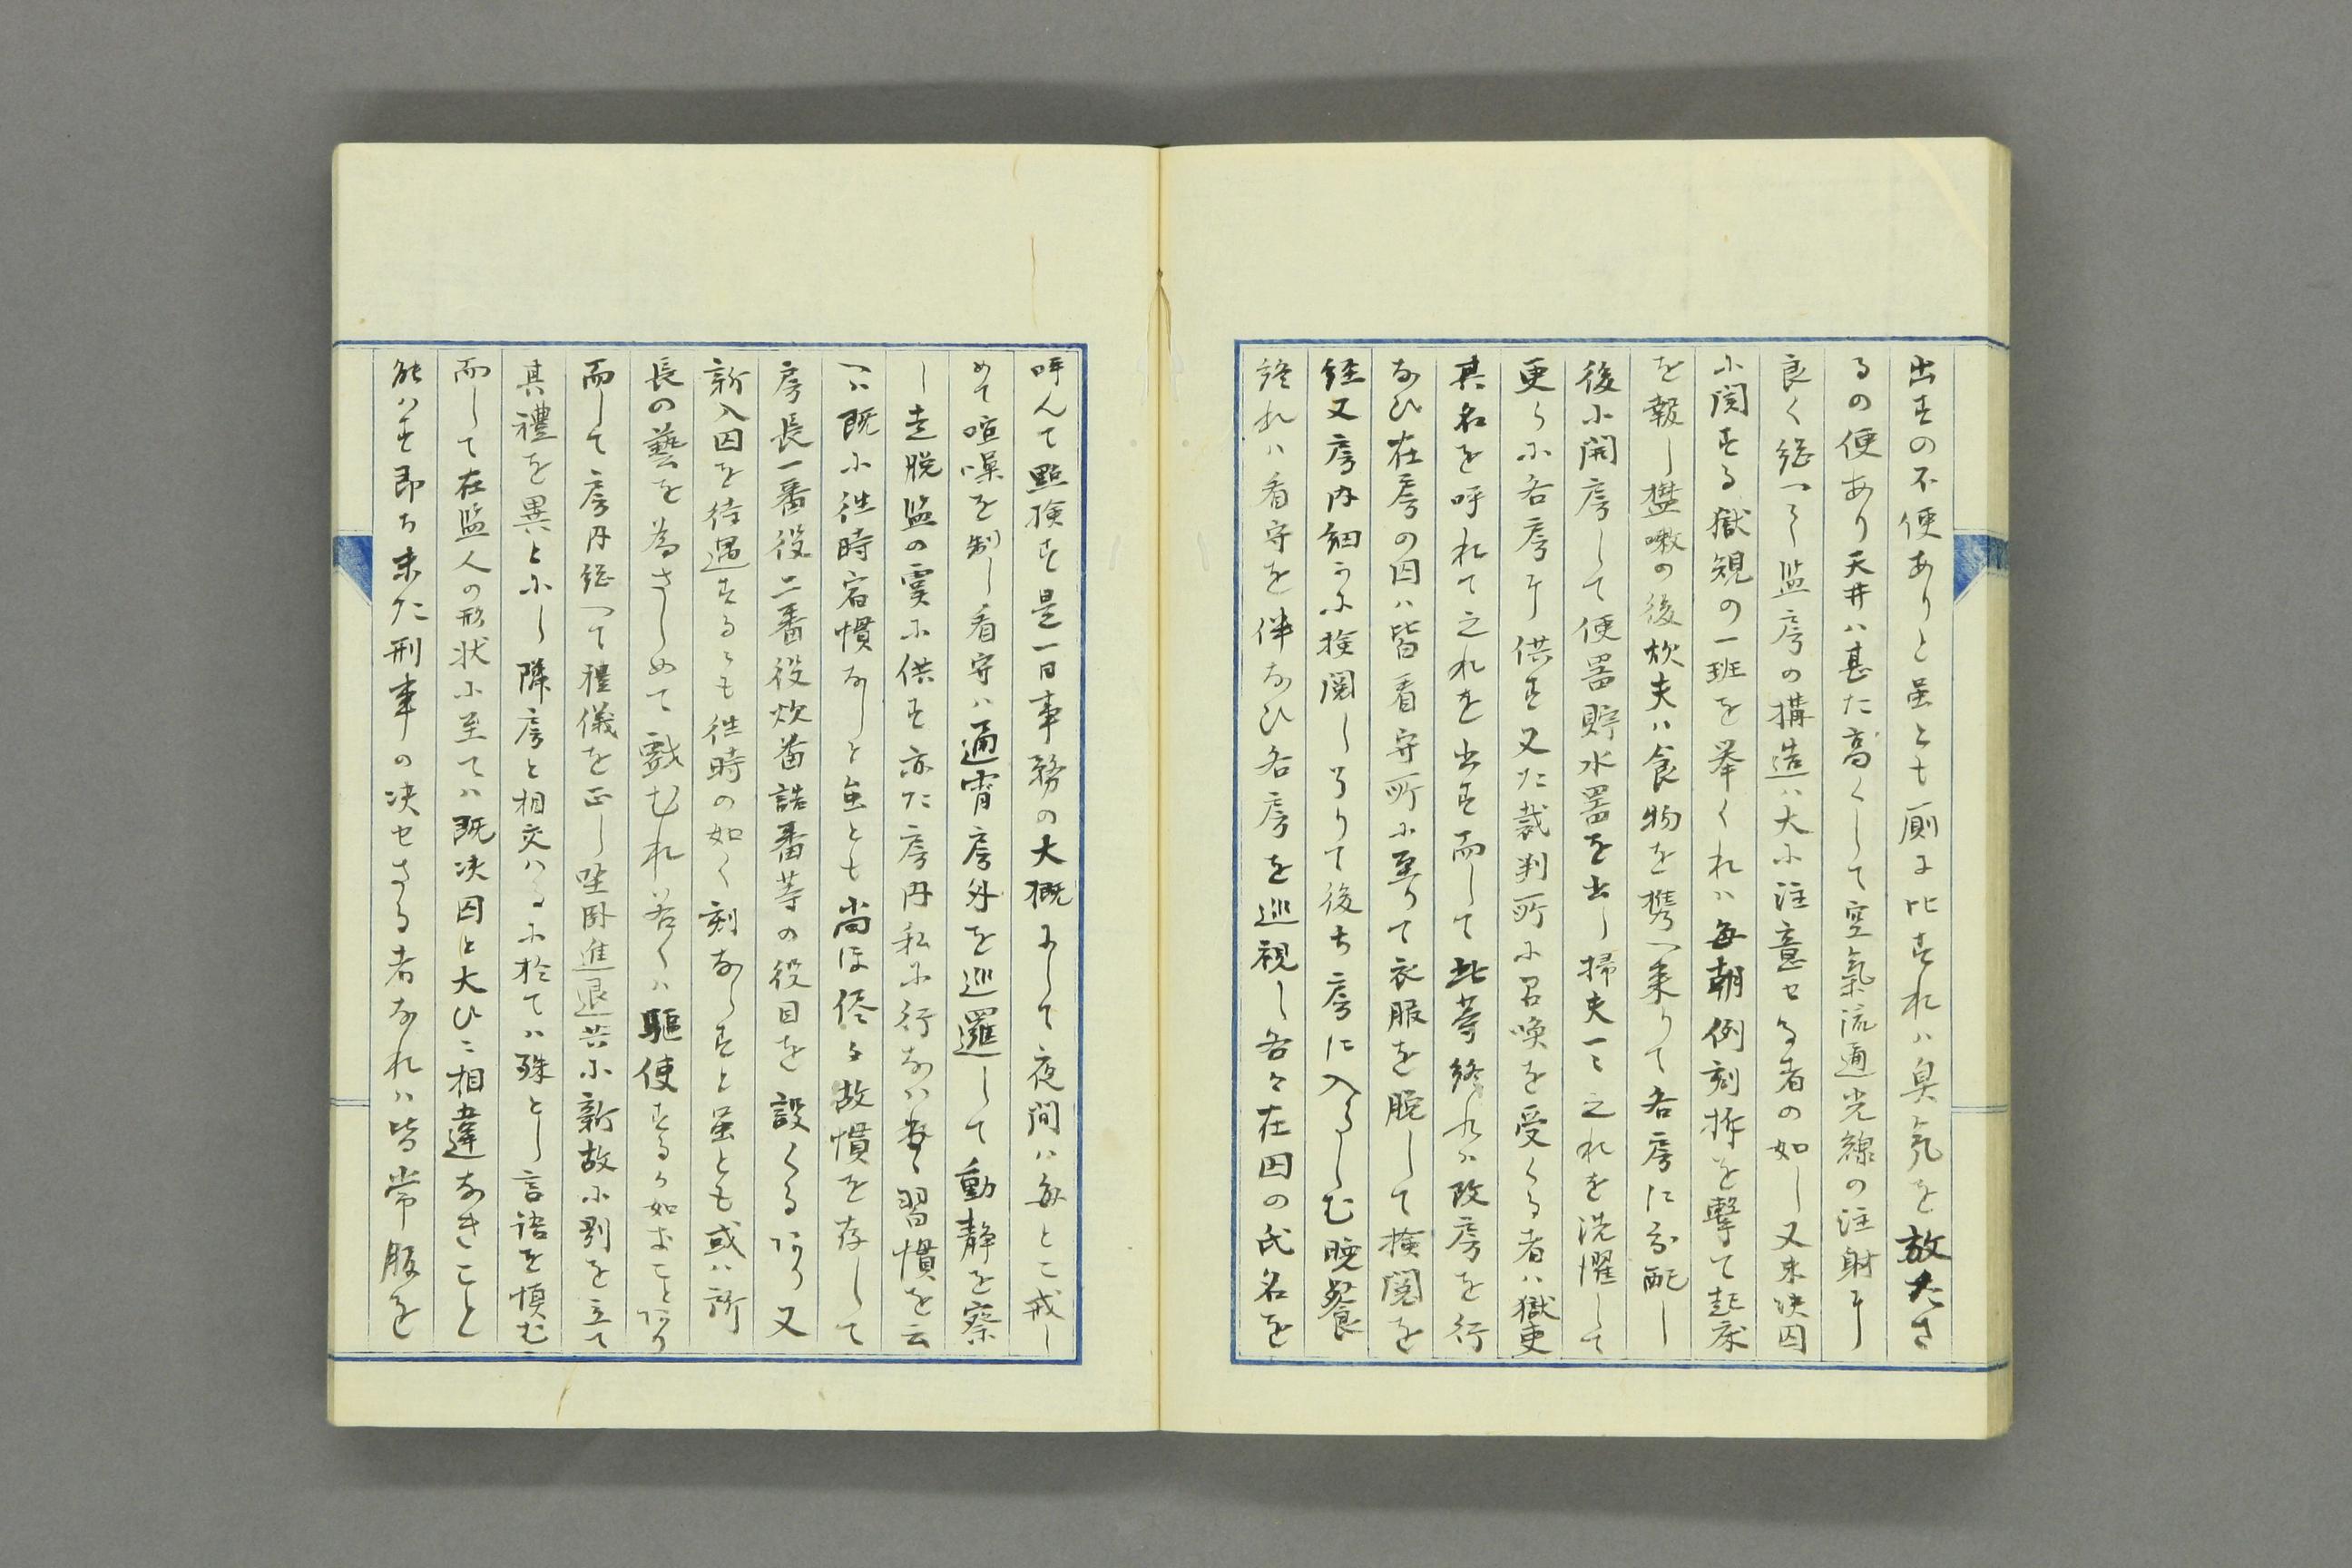 出すの不便ありと虽とも厠に比すれハ臭気を放たさ
るの便あり天井ハ甚た高くして空氣流通光線の注射に
良く総へて監房の構造ハ大に注意せる者の如し又未决囚
に関する獄規の一班を挙くれハ毎朝例刻柝を撃て起床
を報し盥嗽の後炊夫ハ食物を携へ来りて各房に分配し
後に開房して便器貯水器を出し掃夫一々之れを洗濯して
更らに各房に供す又た裁判所に召喚を受くる者ハ獄吏
其名を呼れて之れを出す而して此等終れハ改房を行
なひ在房の囚ハ皆看守所に至りて衣服を脱して検閲を
経又房内細かに検閲し了りて後ち房に入らしむ晩餐
終れハ看守を伴なひ各房を巡視し各々在囚の氏名を
呼んて點検す是一日事務の大概にして夜間ハ厳とに戒し
めて喧噪を制し看守ハ通宵房外を巡邏して動静を察
し走脱監の虞に供す亦た房内私に行なハるゝ習慣を云
へハ既に往時宿慣なしと虽とも尚ほ侭々故慣を存して
房長一番役二番役炊番詰番等の役目を設くるあり又
新入囚を待遇するも往時の如く刻ならすと虽とも或ハ所
長の藝を為さしめて戯むれ若くハ驅使するか如きことあり
而して房内総へて禮儀を正し坐臥進退共に新故に別を立て
其禮を異とにし隣房と相交ハるに於てハ殊とし言語を慎む
而して在監人の形状に至てハ既决囚と大ひに相違なきこと
能ハす即ち未た刑事の决せさる者なれハ皆常服を